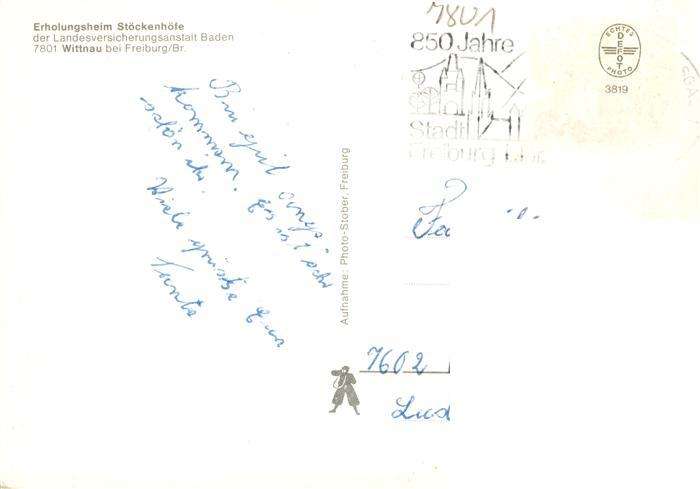 Erholungsheim Stöckenhöfe
der Landesversicherungsanstalt Baden
7801 Wittnau bei Freiburg/Br.
7801
850 Jahre
Stadt
Freiburg
ECHTES
DEFOT
PHOTO
3819
Bin gut ange
kommen. Es ist sehr
schön hier.
Viele Grüße Eure
Tante
Aufnahme: Photo-Stober, Freiburg
Fa
7602
Lud